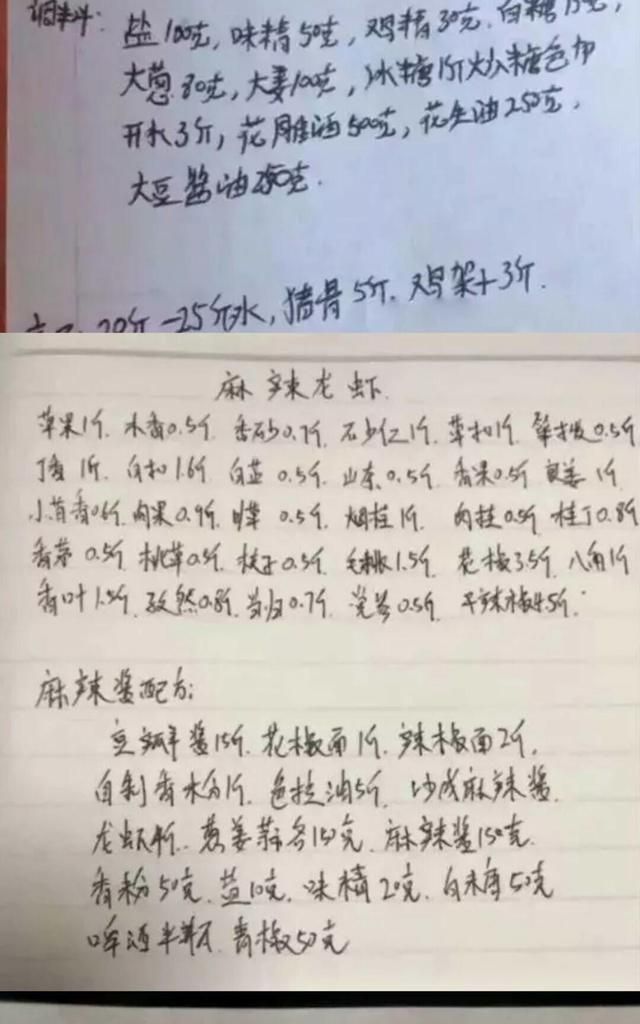 调料: 盐100克, 味精50克, 鸡精30克, 白糖15克,
大葱80克, 大姜100克, 冰糖1斤炒糖色加
开水3斤, 花雕酒500克, 花生油250克,
大豆酱油250克.
20斤-25斤水, 猪骨5斤. 鸡架+3斤.
麻辣龙虾
苹果1斤. 木香0.5斤. 香砂0.7斤. 石少仁1斤. 草扣1斤. 荜拨0.5斤
丁香 1斤. 白扣1.6斤 白芷 0.5斤. 山奈0.5斤. 香果0.5斤 良姜 1斤
小茴香0.6斤. 肉果0.9斤. 甘草 0.5斤. 烟桂1斤. 肉桂0.5斤. 桂丁0.8斤
香茅 0.5斤. 枇草0.5斤. 枝子0.5斤. 毛桃1.5斤. 花椒3.5斤. 八角1斤
香叶1.5斤. 孜然0.8斤. 当归0.7斤. 0.5斤. 干辣椒4.5斤.
麻辣酱配方:
豆瓣酱15斤. 花椒面1斤. 辣椒面2斤.
自制香料1斤. 色拉油5斤. 炒成麻辣酱.
龙虾4斤. 葱姜蒜各150克. 麻辣酱150克.
香粉50克. 盐10克. 味精20克. 白糖50克
啤酒半瓶. 青椒50克